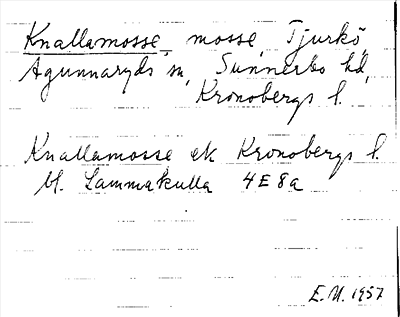 Knallamosse, mosse, Tjurkö,
Agunnaryds sn, Sunnerbo hd,
Kronobergs l.
Knallamosse ek Kronobergs l.
bl. Lammakulla 4E8a
E.U. 1957